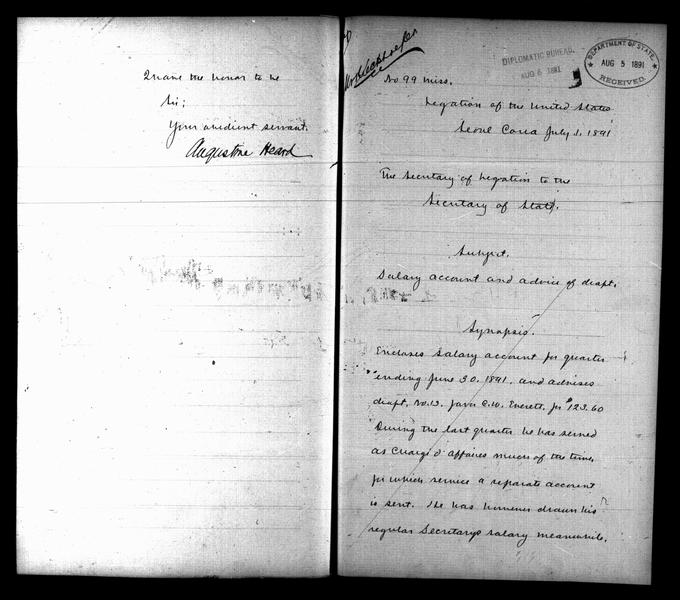 I have the honor to be
Sir;
Your obedient servant.
Augustine Heard
No 99 Miss.
DIPLOMATIC BUREAU.
AUG 6 1891
DEPARTMENT OF STATE.
AUG 5 1891
RECEIVED.
Legation of the United States
Seoul Corea July 1, 1891
The Secretary of Legation to the
Secretary of State.
Subject.
Salary account and advice of draft.
Synopsis.
Encloses salary account for quarter
ending June 30. 1891. and advises
draft. No.13. favor E.W. Everett. for $123.60
During the last quarter he has served
as Chargé d'affaires much of the time,
for which service a separate account
is sent. He has however drawn his
regular Secretarys salary meanwhile.